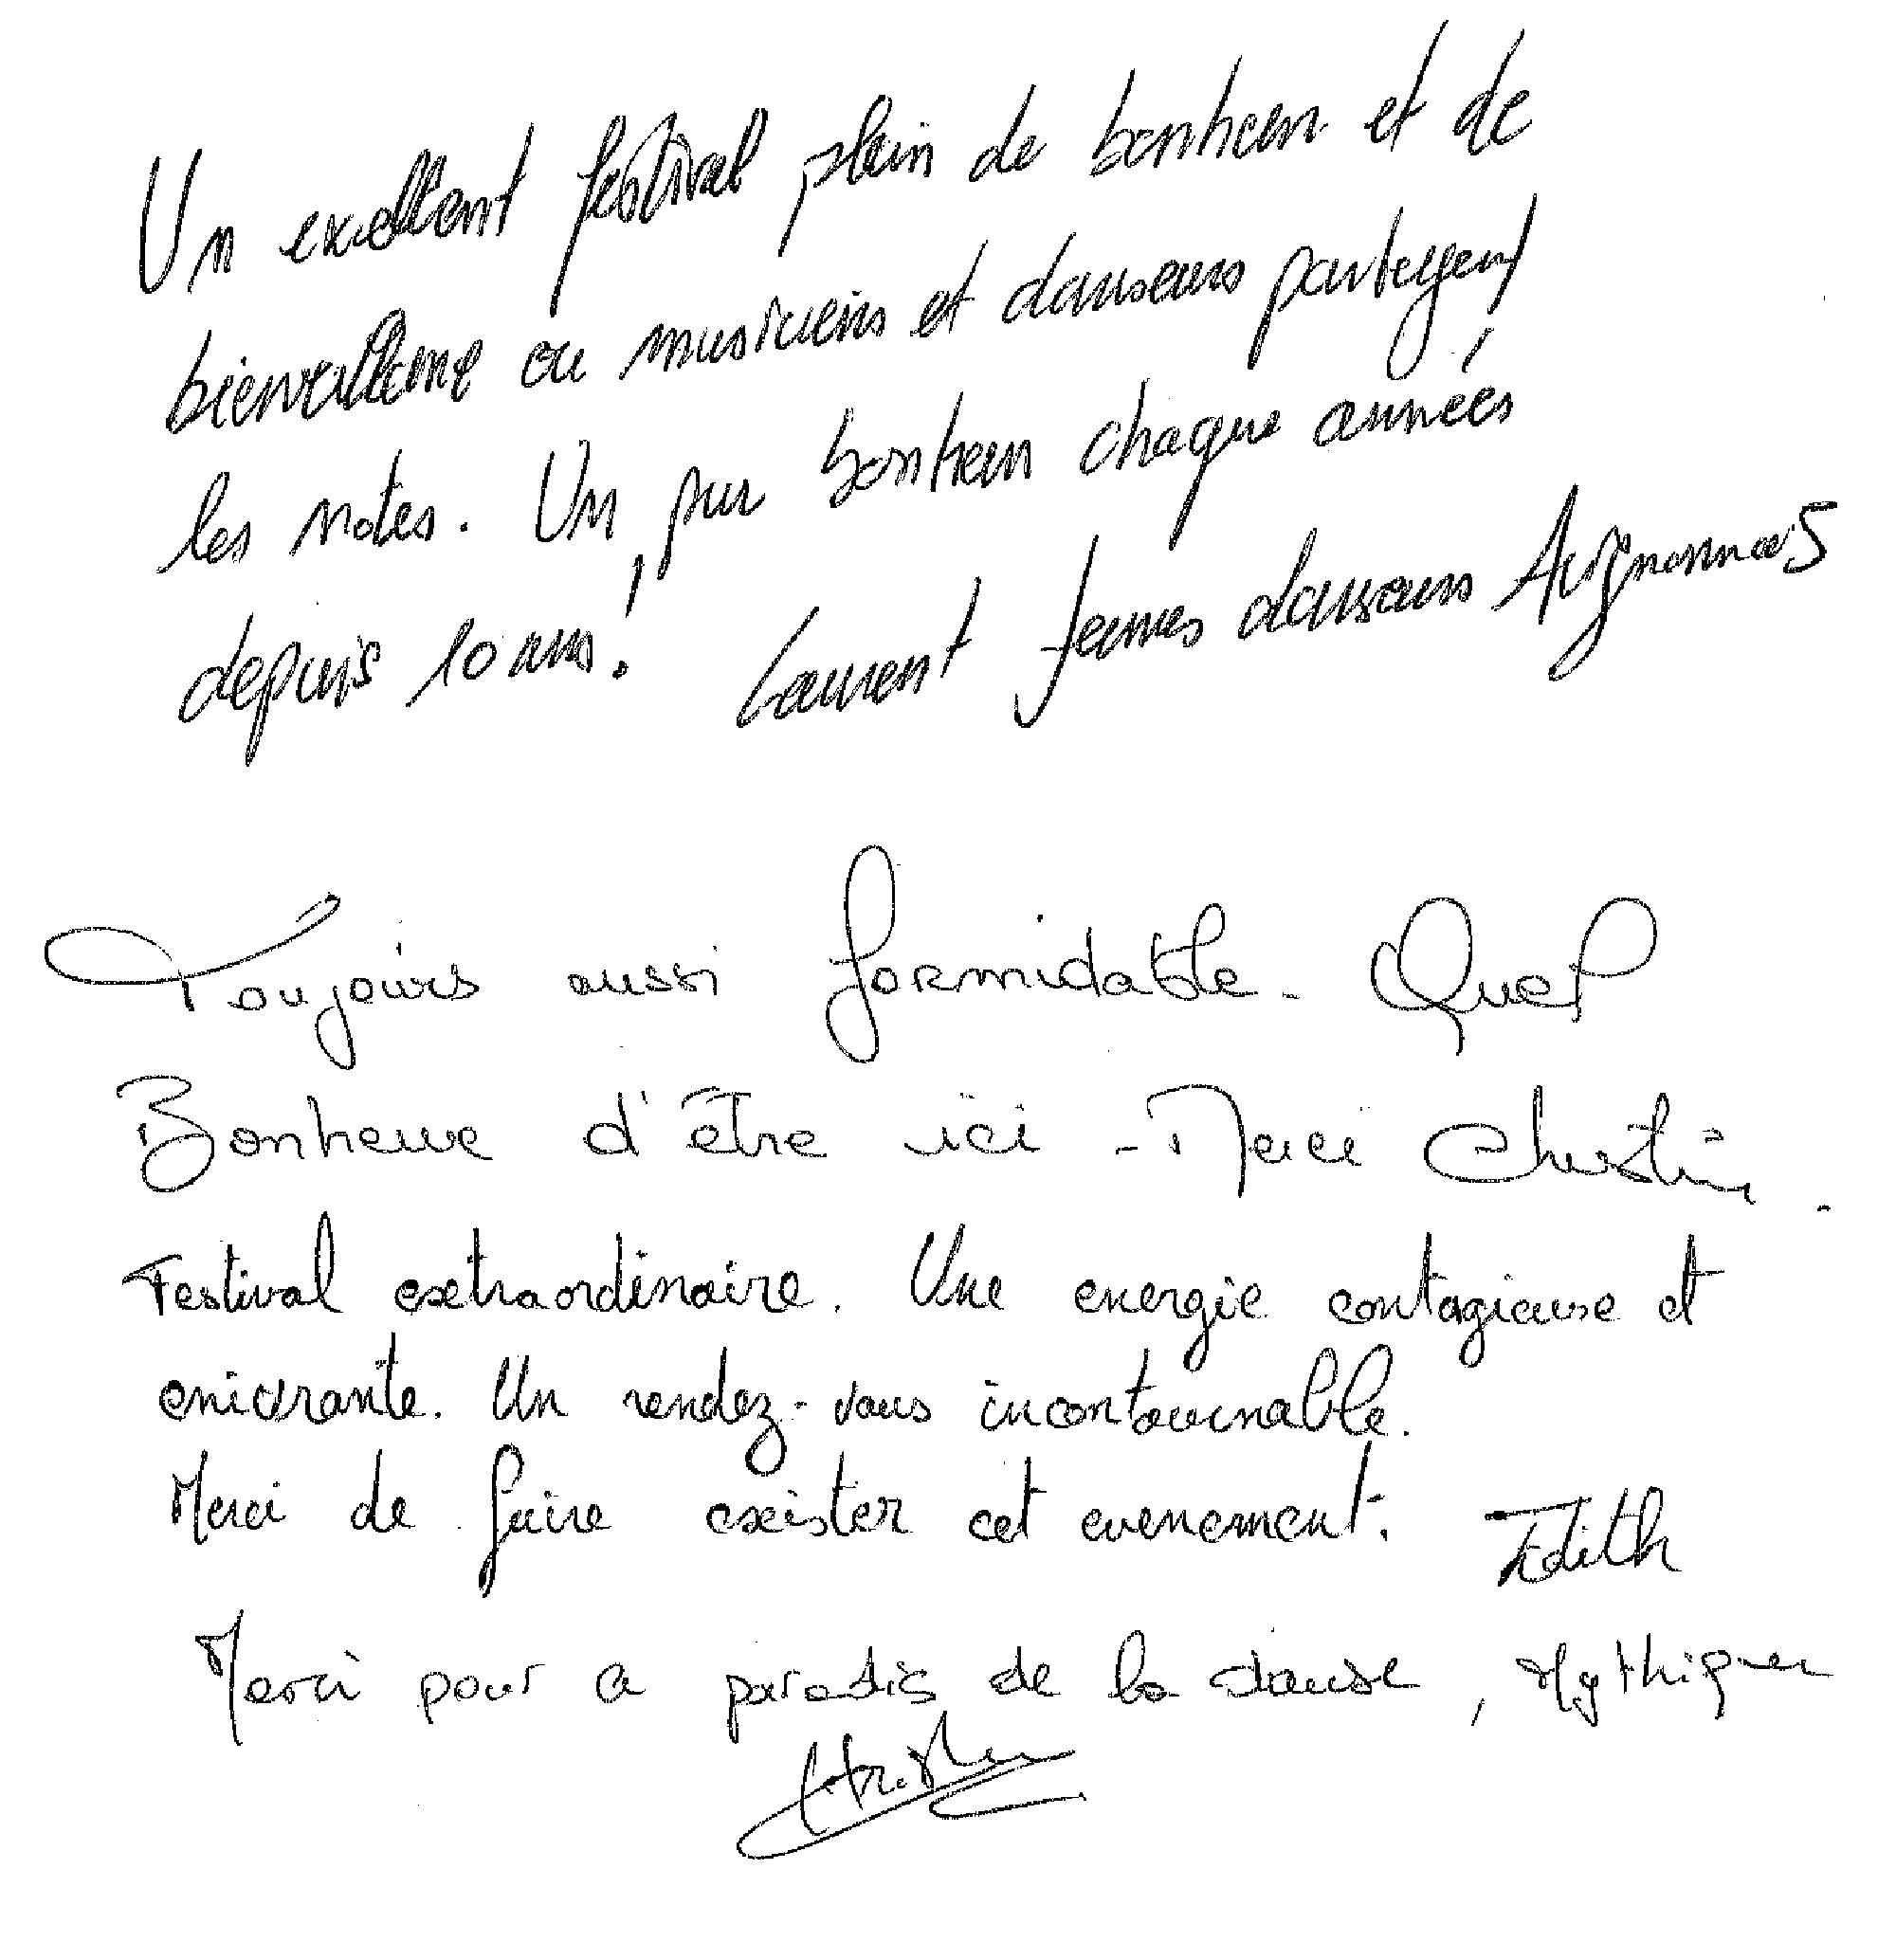 Un excellent festival plein de bonheur et de
bienveillance ou musiciens et danseurs partagent
les notes. Un pur bonheur chaque années
depuis 10 ans! Laurent Jeunes danseurs Avignonnais
Toujours aussi formidable - Quel
Bonheur d'être ici - Merci Christine.
Festival extraordinaire. Une energie contagieuse et
enivrante. Un rendez-vous incontournable.
Merci de faire exister cet evenement. Edith
Merci pour ce paradis de la danse, Mythique